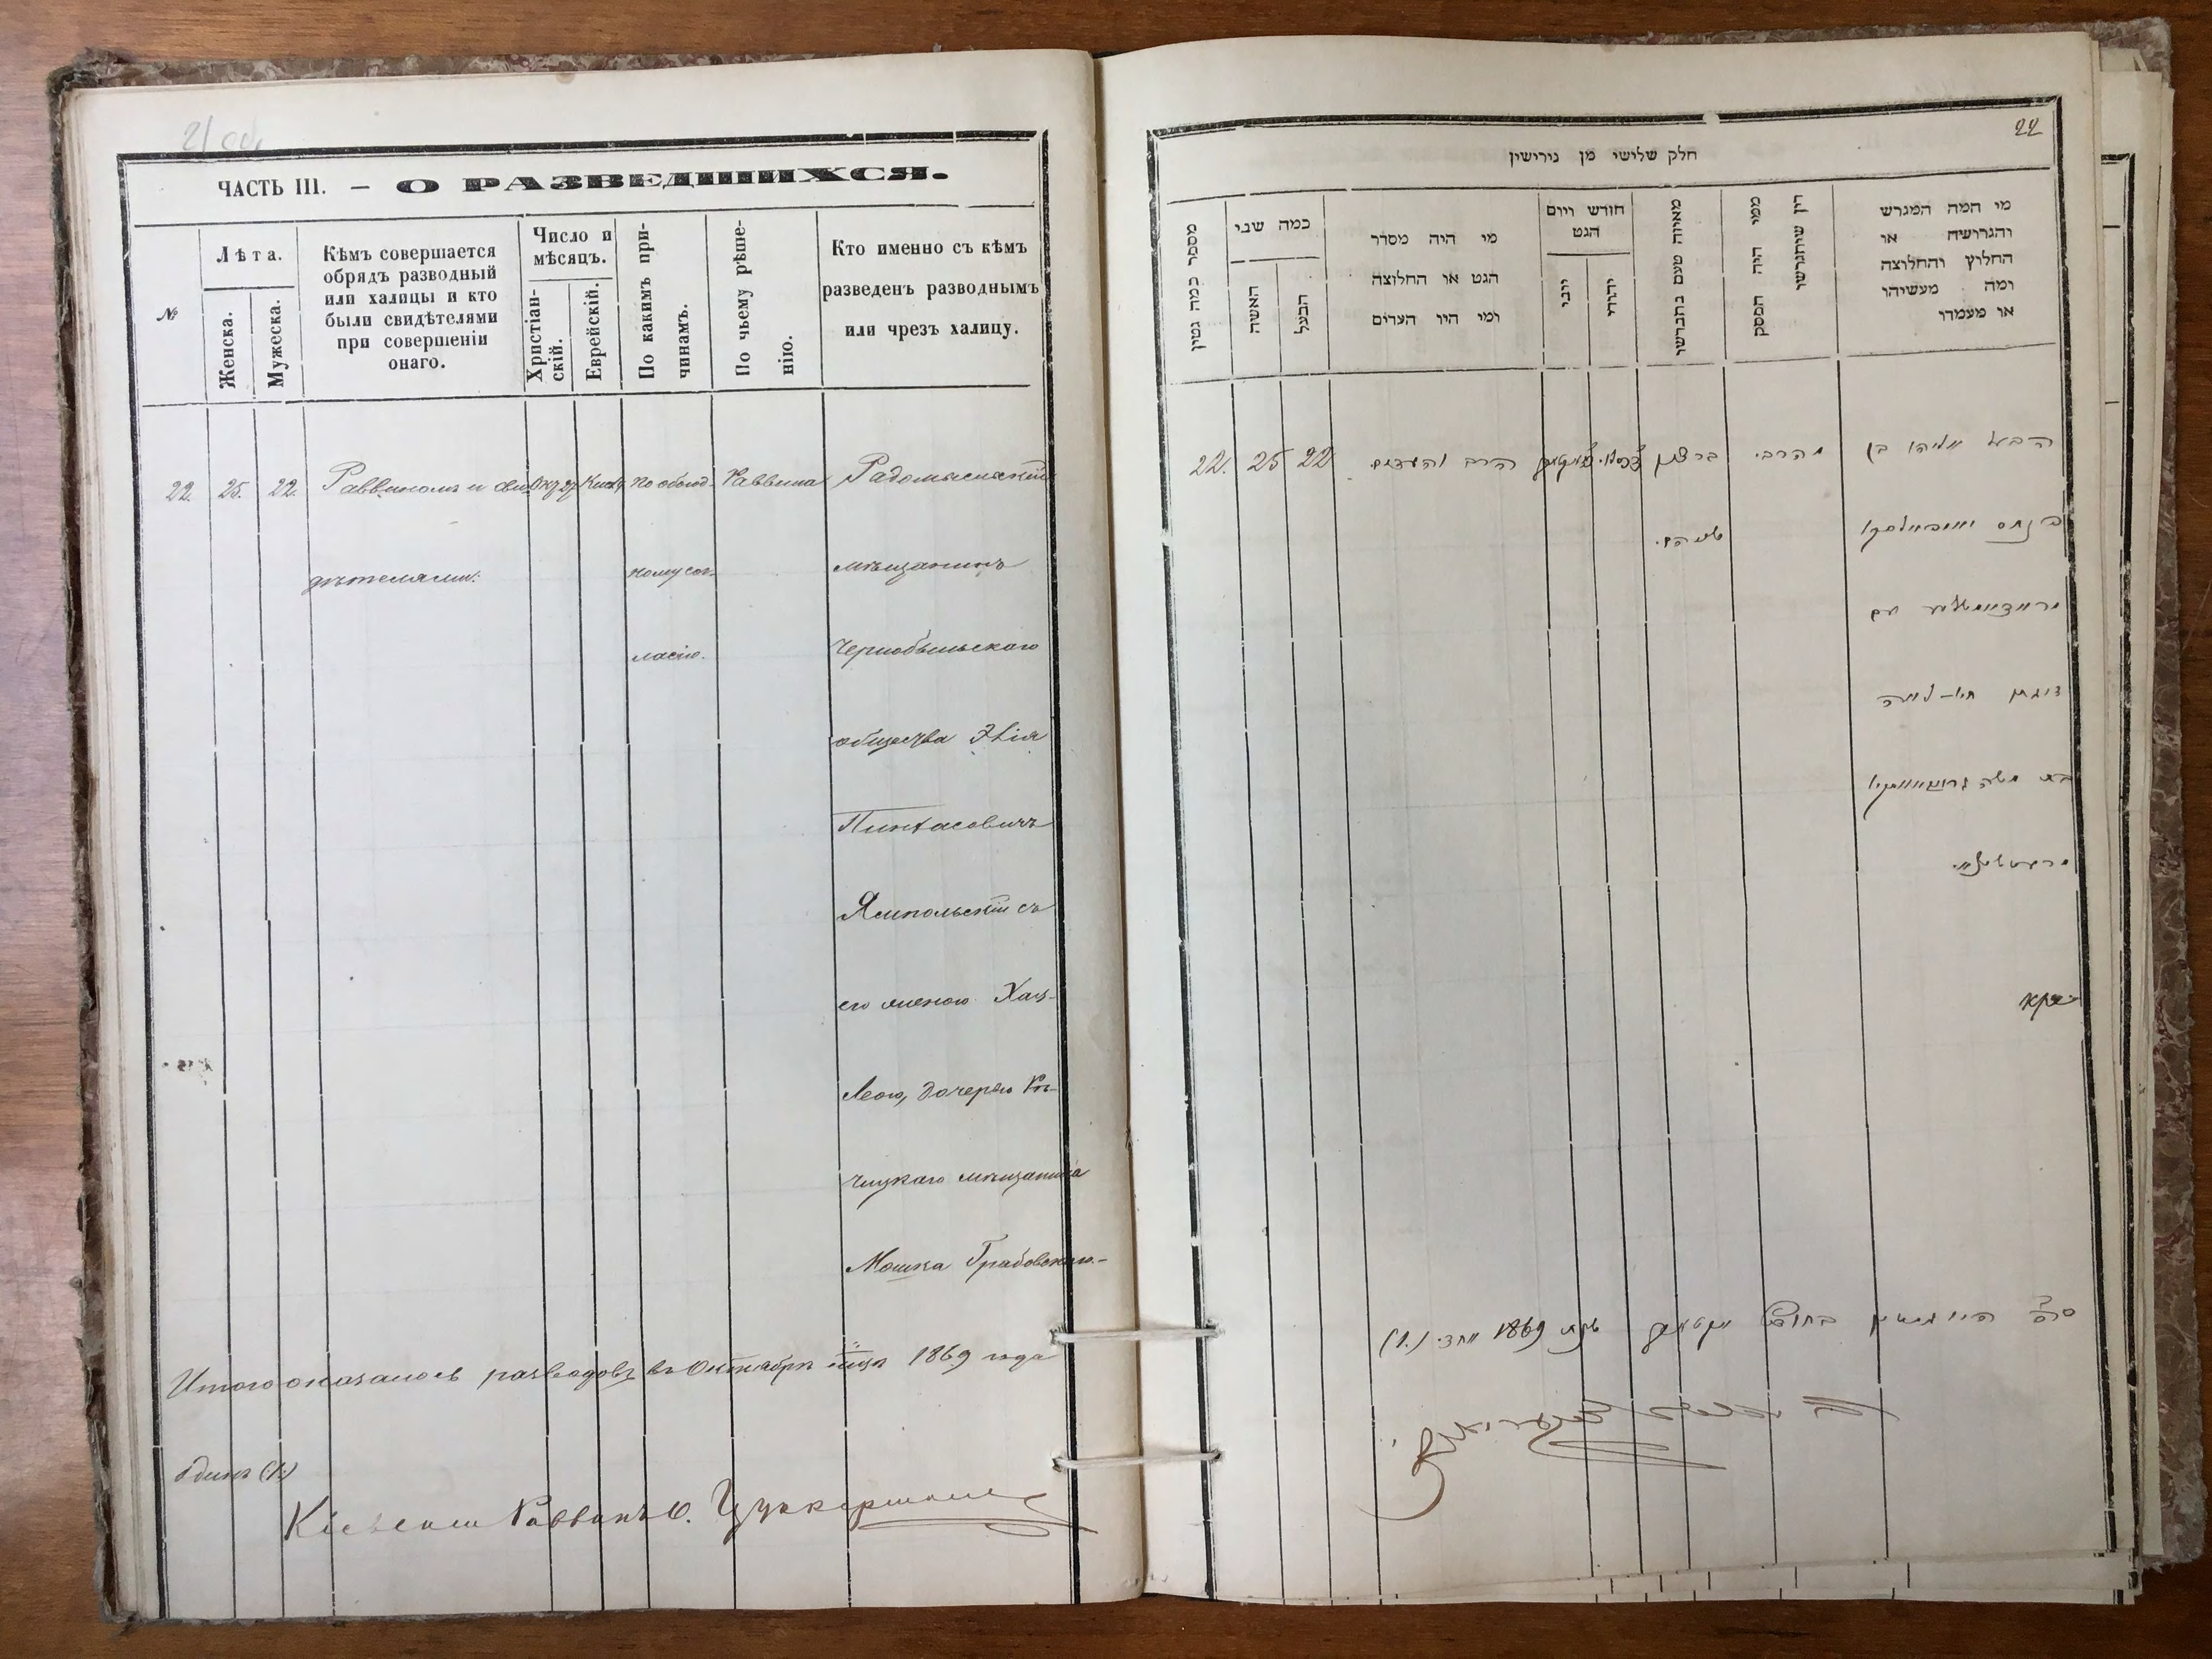 21 об.
ЧАСТЬ III. — О РАЗВЕДШИХСЯ.
№
Лѣта.
Женска.
Мужеска.
Кѣмъ совершается
обрядъ разводный
или халицы и кто
были свидѣтелями
при совершеніи
онаго.
Число и
мѣсяцъ.
Христіан-
скій.
Еврейскій.
По какимъ при-
чинамъ.
По чьему рѣше-
нію.
Кто именно съ кѣмъ
разведенъ разводнымъ
или чрезъ халицу.
22. 25. 22. Раввиномъ и сви- Окт 27 по обоюд- Раввина Радомысльскій
дѣтелями. ному сог- мѣщанинъ
ласію. Чернобыльскаго
общества Элія
Пинхасовичъ
Ямпольскій съ
его женою Хаи-
Леою, дочерью Рѣ-
чицкаго мѣщанина
Мошка Грабовскаго.-
Итого оказалось разводовъ въ Октябрѣ мцѣ 1869 года
одинъ (1.)
Кіевскій Раввинъ Цуккерманъ
22
חלק שלישי מן גירישין
מספר כמה גטין
כמה שני
האשה
הבעל
מי היה מסדר
הגט או החלוצה
ומי היו העדים
חודש ויום
הגט
יוני
יהודי
מאיזה טעם נתגרשו
ממי היה הפסק
דין שיתגרשו
מי המה המגרש
והגרושה או
החלוץ והחלוצה
ומה מעשיהו
או מעמדו
22. 25 22 הרב והעדים. ברצון מהרבי. הבעל אליהו בן
שניהם. פנחס יאמפאלסקי
עם
חי-לאה
בת משה גראבאווסקי
1869 (1.)